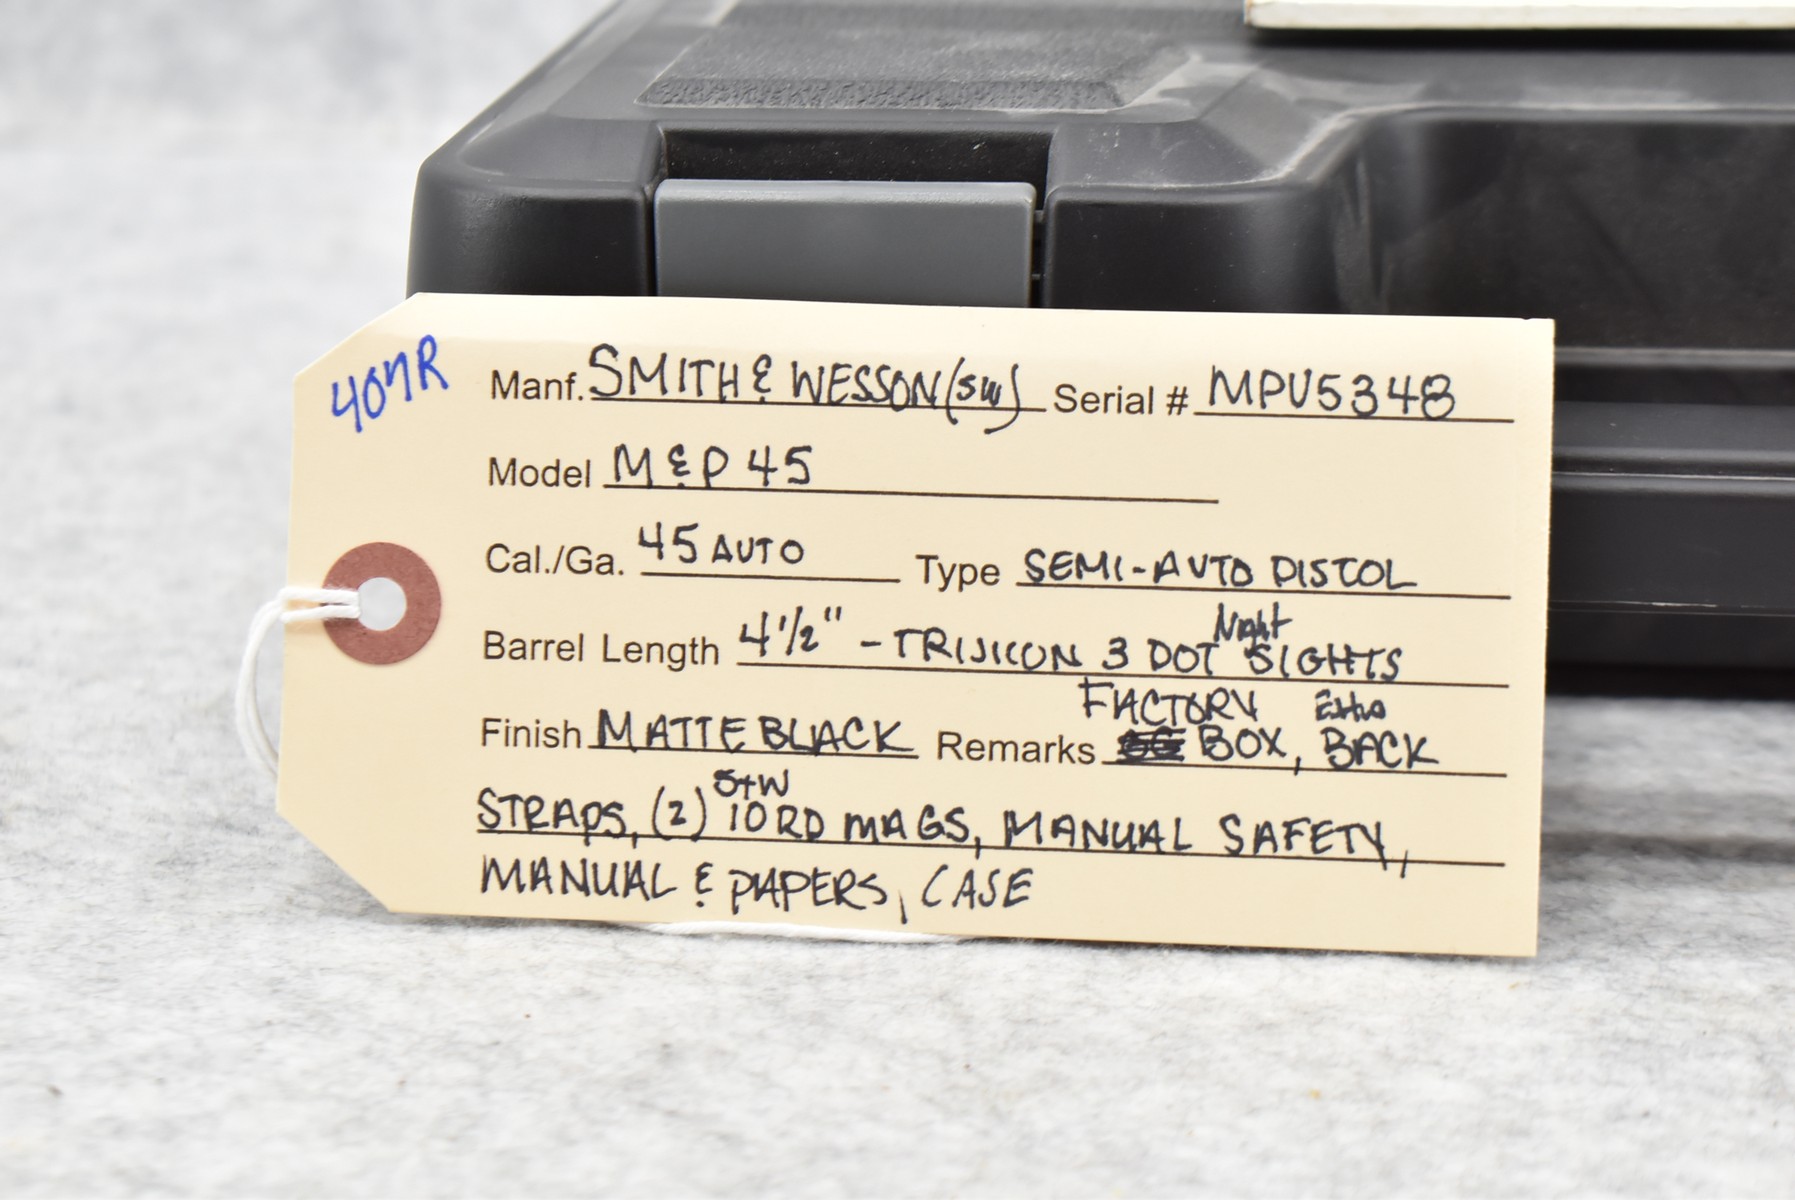 407R
Manf. SMITH & WESSON (SW) Serial # MPU5348
Model M&P 45
Cal./Ga. 45 AUTO Type SEMI-AUTO PISTOL
Barrel Length 4 1/2" - TRIJICON 3 DOT Night SIGHTS
Finish MATTE BLACK Remarks FACTORY BOX, Extra BACK
STRAPS, (2) S+W 10RD MAGS, MANUAL SAFETY,
MANUAL & PAPERS, CASE